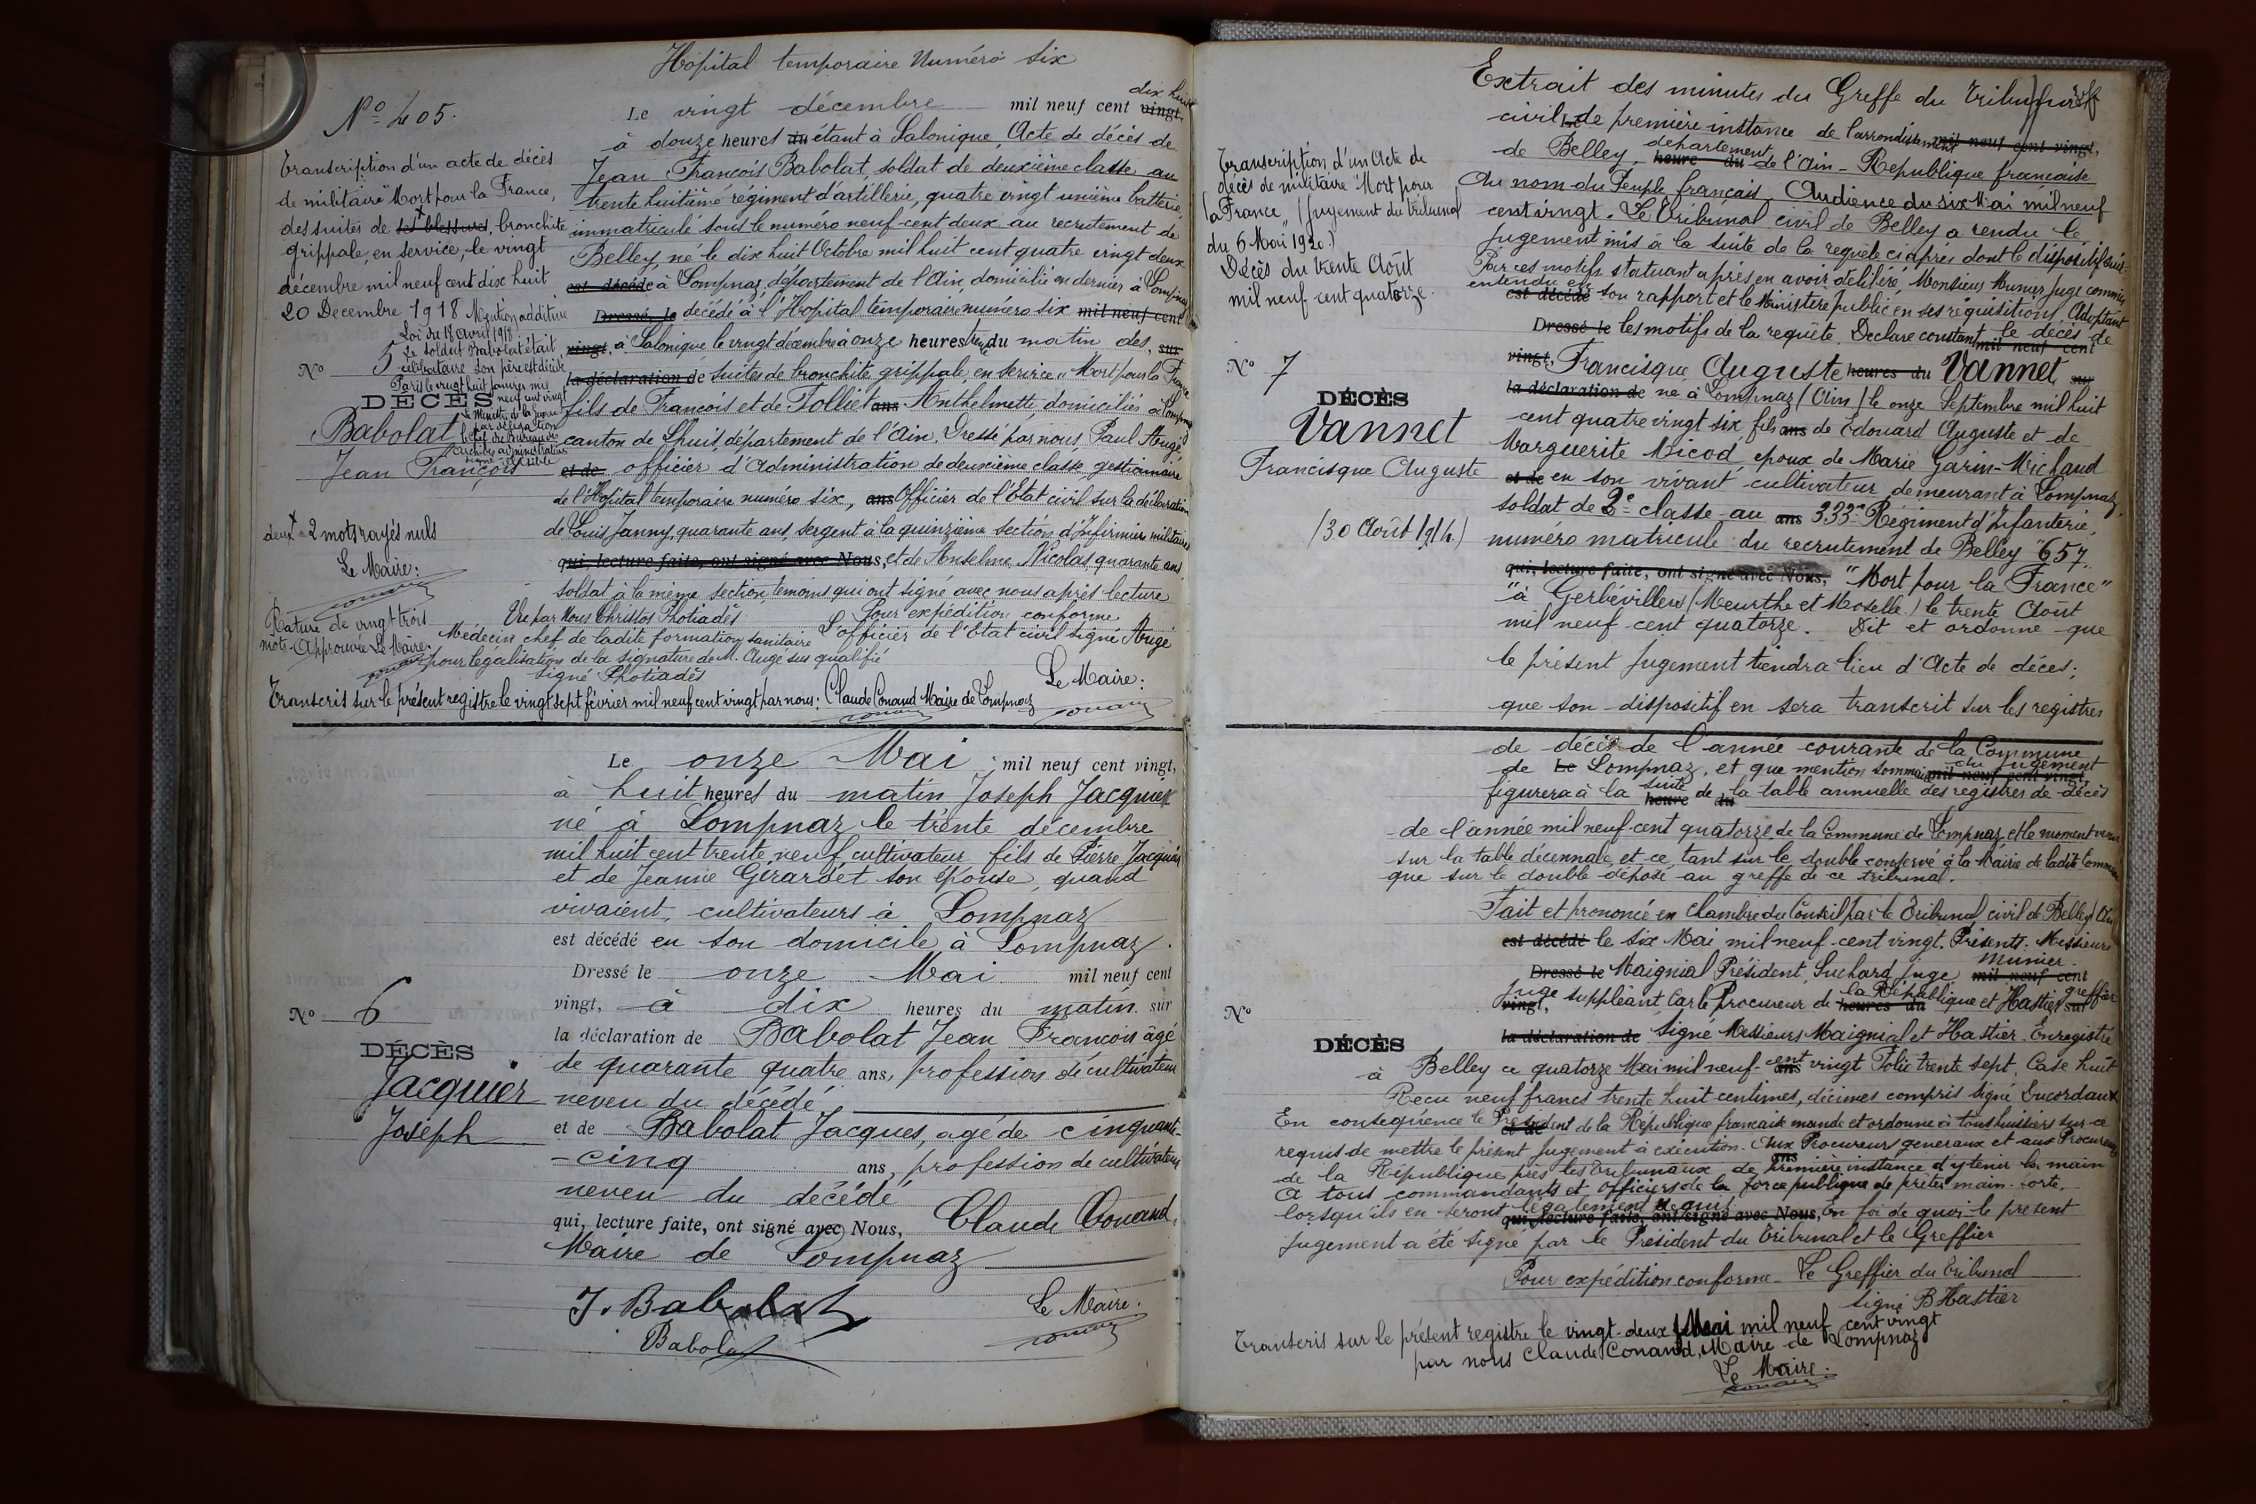 Hôpital temporaire Numéro six
N° 405.
Le vingt décembre mil neuf cent vingt dix huit
à douze heures du étant à Salonique, Acte de décès de
Jean François Babolat, soldat de deuxième classe, au
trente huitième régiment d'artillerie, quatre vingt unième batterie,
immatriculé sous le numéro neuf cent deux au recrutement de
Belley, né le dix huit Octobre mil huit cent quatre vingt deux
est décédé à Lompnaz, département de l'Ain, domicilié en dernier à Lompnaz
Dressé le décédé à l'Hôpital temporaire numéro six mil neuf cent
vingt, à Salonique le vingt décembre à onze heures trente du matin des, sur
la déclaration de suites de bronchite grippale, en service "Mort pour la France
fils de François et de Folliet ans Anthelmette, domiciliés à Lompnaz
canton de Lhuis, département de l'Ain. Dressé par nous, Paul Augé,
et de officier d'Administration de deuxième classe, gestionnaire
de l'Hôpital temporaire numéro six, ans Officier de l'État civil sur la déclaration
de Louis Janny, quarante ans, sergent à la quinzième section d'Infirmiers militaires
qui, lecture faite, ont signé avec Nous, et de Anselme Nicolas quarante ans,
soldat à la même section, témoins qui ont signé avec nous après lecture
Vu par Nous Christos Photiadès
Médecin chef de ladite formation sanitaire
pour légalisation de la signature de M. Augé sus qualifié
signé Photiadès
Pour expédition conforme
L'officier de l'État civil signé Augé
Le Maire:
Transcris sur le présent registre le vingt sept février mil neuf cent vingt par nous: Claude Conand Maire de Lompnaz
Transcription d'un acte de décès
de militaire "Mort pour la France,
des suites de ses blessures, bronchite
grippale, en service, le vingt
décembre mil neuf cent dix huit
20 Decembre 1918 Mention additive
Loi du 18 Avril 1918
Le soldat Babolat était
célibataire son père est décédé
Paris le vingt huit janvier mil
neuf cent vingt
Le Ministre de la Guerre
par délégation
le Chef du Bureau des
Archives administratives
signé illisible
N° 5
DÉCÈS
Babolat
Jean François
deux 2 mots rayés nuls
Le Maire:
Rature de vingt trois
mots Approuvée Le Maire.
Le onze Mai mil neuf cent vingt,
à huit heures du matin Joseph Jacquier
né à Lompnaz le trente décembre
mil huit cent trente neuf, cultivateur fils de Pierre Jacquier
et de Jeanne Girardet son épouse, quand
vivaient, cultivateurs à Lompnaz
est décédé en son domicile à Lompnaz.
Dressé le onze Mai mil neuf cent
vingt, à dix heures du matin sur
la déclaration de Babolat Jean François âgé
de quarante quatre ans, profession de cultivateur
neveu du décédé
et de Babolat Jacques, agé de cinquant-
-cinq ans, profession de cultivateur
neveu du décédé
qui, lecture faite, ont signé avec Nous, Claude Conand,
Maire de Lompnaz
J. Babolat
Babolat
Le Maire.
N° 6
DÉCÈS
Jacquier
Joseph
Extrait des minutes du Greffe du Tribunal
civil Le de première instance de l'arrondissement mil neuf cent vingt,
de Belley, heure du département de l'Ain - République française
Au nom du Peuple français Audience du six Mai mil neuf
cent vingt. Le Tribunal civil de Belley a rendu le
jugement mis à la suite de la requête ci après dont le dispositif suit:
Par ces motifs statuant après en avoir délibéré, Monsieur Munier Juge commis
entendu en
est décédé son rapport et le Ministère public en ses réquisitions, Adoptant
Dressé le les motifs de la requête. Declare constant mil neuf cent le décès de
vingt, Francisque Auguste heures du Vannet sur
la déclaration de né à Lompnaz (Ain) le onze Septembre mil huit
cent quatre vingt six, fils ans de Edouard Auguste et de
Marguerite Nicod, epoux de Marie Garin-Michaud
et de en son vivant cultivateur demeurant à Lompnaz,
soldat de 2e classe au ans 333e Régiment d'Infanterie,
numéro matricule du recrutement de Belley "657"
qui, lecture faite, ont signé avec Nous, "Mort pour la France"
"à Gerbévillers (Meurthe et Moselle) le trente Août
mil neuf cent quatorze. Dit et ordonne que
le présent jugement tiendra lieu d'Acte de décès;
que son dispositif en sera transcrit sur les registres
de décès de l'année courante de la Commune
de Le Lompnaz, et que mention sommaire mil neuf cent vingt, du jugement
figurera à la suite heure de du la table annuelle des registres de décès
de l'année mil neuf cent quatorze de la Commune de Lompnaz, et le moment venu
sur la table décennale et ce, tant sur le double conservé à la Mairie de ladite Commune
que sur le double déposé au greffe de ce tribunal.
Fait et prononcé en Chambre du Conseil par le Tribunal civil de Belley (Ain)
est décédé le six Mai mil neuf cent vingt. Présents: Messieurs
Dressé le Maignial Président, Suchard juge Munier mil neuf cent
vingt, juge suppléant, Carle Procureur de la République heures du et Hastier greffier sur
la déclaration de Signé Messieurs Maignial et Hastier. Enregistré
à Belley ce quatorze Mai mil neuf cent ans vingt Folio trente sept, Case huit
Reçu neuf francs trente huit centimes, décimes compris signé Ducordeaux
En conséquence le Président et de de la République française mande et ordonne à tous huissiers sur ce
requis de mettre le présent jugement à exécution. Aux Procureurs generaux et aux Procureurs
de la République près les Tribunaux de ans première instance d'y tenir la main
A tous commandants et officiers de la force publique de prêter main-forte,
lorsqu'ils en seront légalement requis
qui, lecture faite, ont signé avec Nous, En foi de quoi le present
jugement a été signé par le Président du Tribunal et le Greffier
Pour expédition conforme - Le Greffier du Tribunal
signé B Hastier
Transcris sur le présent registre le vingt-deux Mai mil neuf cent vingt
par nous Claude Conand, Maire de Lompnaz
Le Maire.
Transcription d'un Acte de
décès de militaire "Mort pour
la France, (jugement du tribunal
du 6 Mai 1920.)
Décès du trente Août
mil neuf cent quatorze.
N° 7
DÉCÈS
Vannet
Francisque Auguste
(30 Août 1914)
N°
DÉCÈS